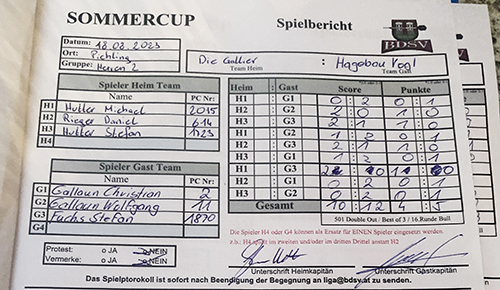 SOMMERCUP Spielbericht
BDSV
Datum: 18.08.2023
Ort: Pichling
Gruppe: Herren 2
Die Gallier : Hagebau Vogl
Team Heim Team Gast
Spieler Heim Team
Name PC Nr:
H1 Hutter Michael 2015
H2 Rieger Daniel 614
H3 Hutter Stefan 1723
H4
Spieler Gast Team
Name PC Nr:
G1 Galloun Christian 2
G2 Galloun Wolfgang 11
G3 Fuchs Stefan 1870
G4
Heim Gast Score Punkte
H1 : G1 0 : 2 0 : 1
H2 : G2 2 : 0 1 : 0
H3 : G3 2 : 1 1 : 0
H1 : G2 1 : 2 0 : 1
H2 : G3 2 : 1 1 : 0
H3 : G1 1 : 2 0 : 1
H1 : G3
H2 : G1 0 : 2 0 : 1
H3 : G2 0 : 2 0 : 1
Gesamt 10 : 12 4 : 5
501 Double Out / Best of 3 / 16.Runde Bull
Die Spieler H4 oder G4 können als Ersatz für EINEN Spieler eingesetzt werden.
z.b.: H4 spielt im zweiten und/oder im dritten Drittel anstatt H2
Protest: o JA o NEIN
Vermerke: o JA o NEIN
Unterschrift Heimkapitän Unterschrift Gastkapitän
Das Spielprotokoll ist sofort nach Beendigung der Begegnung an liga@bdsv.at zu senden.